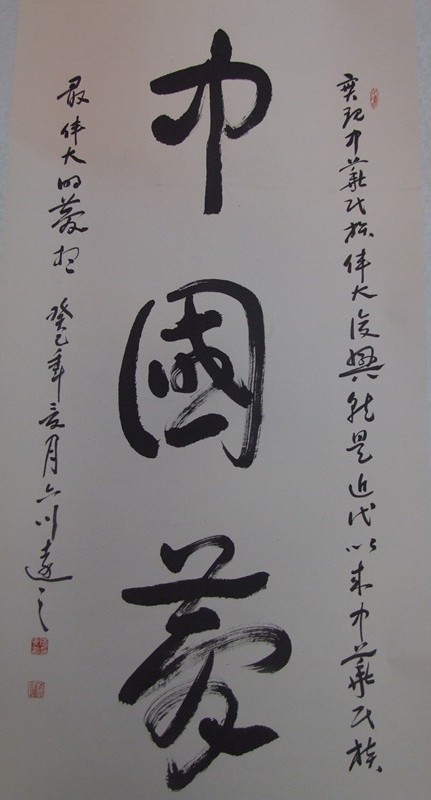 實現中華民族偉大復興就是近代以來中華民族
中國夢
最偉大的夢想 癸巳年亥月六川遠之